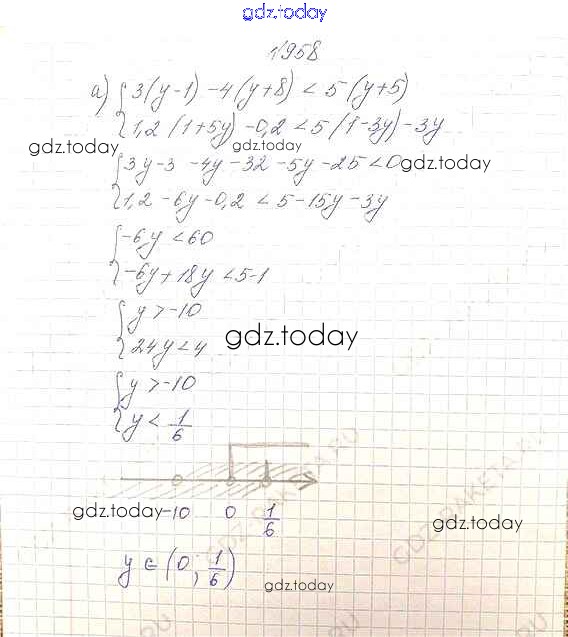 gdz.today
№958
а) { 3(y-1) -4(y+8) < 5(y+5)
{ 1,2(1+5y) -0,2 < 5(1-3y) -3y
gdz.today gdz.today
{ 3y-3 -4y -32 -5y -25 < 0 gdz.today
{ 1,2 -6y -0,2 < 5 -15y -3y
{ -6y < 60
{ -6y + 18y < 5-1
{ y > -10
{ 24y < 4
gdz.today
{ y > -10
{ y < 1/6
gdz.today -10 0 1/6
gdz.today
y ∈ (0; 1/6)
gdz.today
GDZ-RAKETA.RU